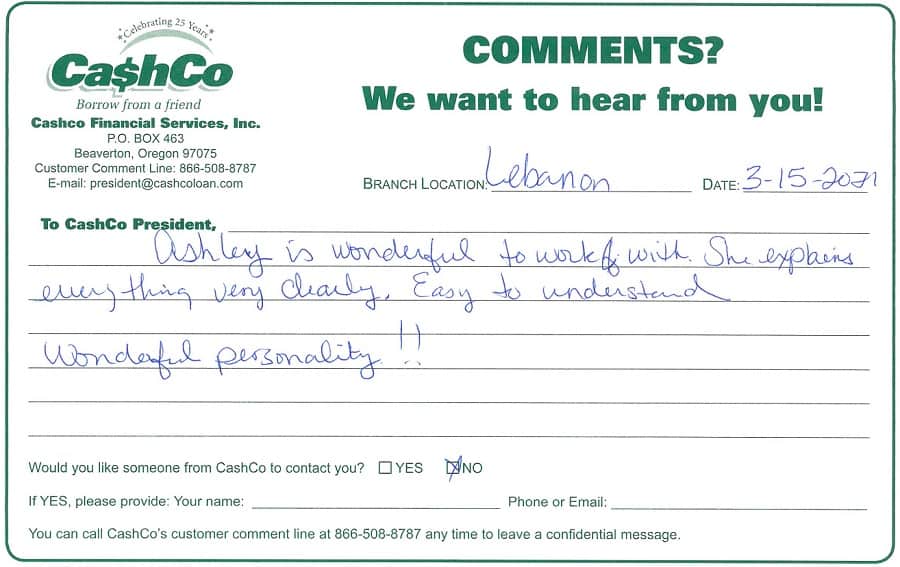 *Celebrating 25 Years*
Ca$hCo
Borrow from a friend
Cashco Financial Services, Inc.
P.O. BOX 463
Beaverton, Oregon 97075
Customer Comment Line: 866-508-8787
E-mail: president@cashcoloan.com
COMMENTS?
We want to hear from you!
BRANCH LOCATION: Lebanon DATE: 3-15-2021
To CashCo President,
Ashley is wonderful to work with. She explains
everything very clearly. Easy to understand
Wonderful personality!!
Would you like someone from CashCo to contact you? ☐ YES ☒ NO
If YES, please provide: Your name: Phone or Email:
You can call CashCo's customer comment line at 866-508-8787 any time to leave a confidential message.